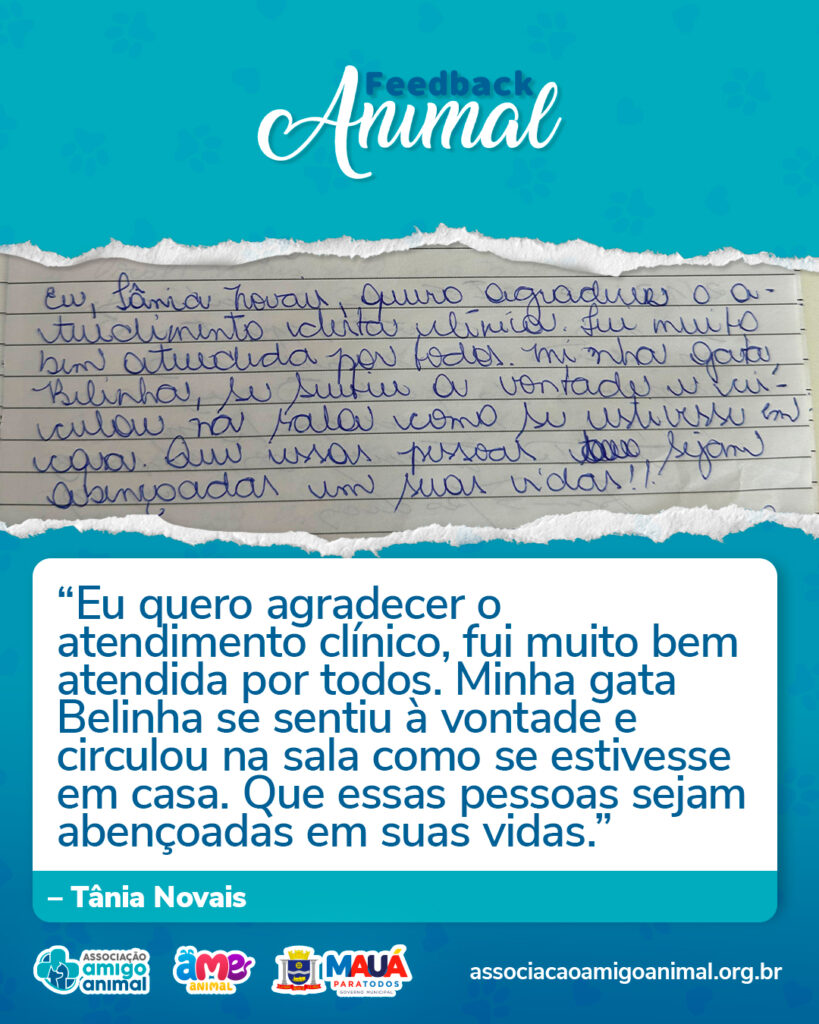 Feedback
Animal
Eu, Tânia Novais, quero agradecer o a-
tendimento desta clínica. Fui muito
bem atendida por todos. Minha gata
Belinha, se sentiu a vontade e cir-
culou na sala como se estivesse em
casa. Que essas pessoas sejam
abençoadas em suas vidas!!
“Eu quero agradecer o
atendimento clínico, fui muito bem
atendida por todos. Minha gata
Belinha se sentiu à vontade e
circulou na sala como se estivesse
em casa. Que essas pessoas sejam
abençoadas em suas vidas.”
– Tânia Novais
ASSOCIAÇÃO
amigo
animal
ame
ANIMAL
MAUÁ
PARATODOS
GOVERNO MUNICIPAL
associacaoamigoanimal.org.br